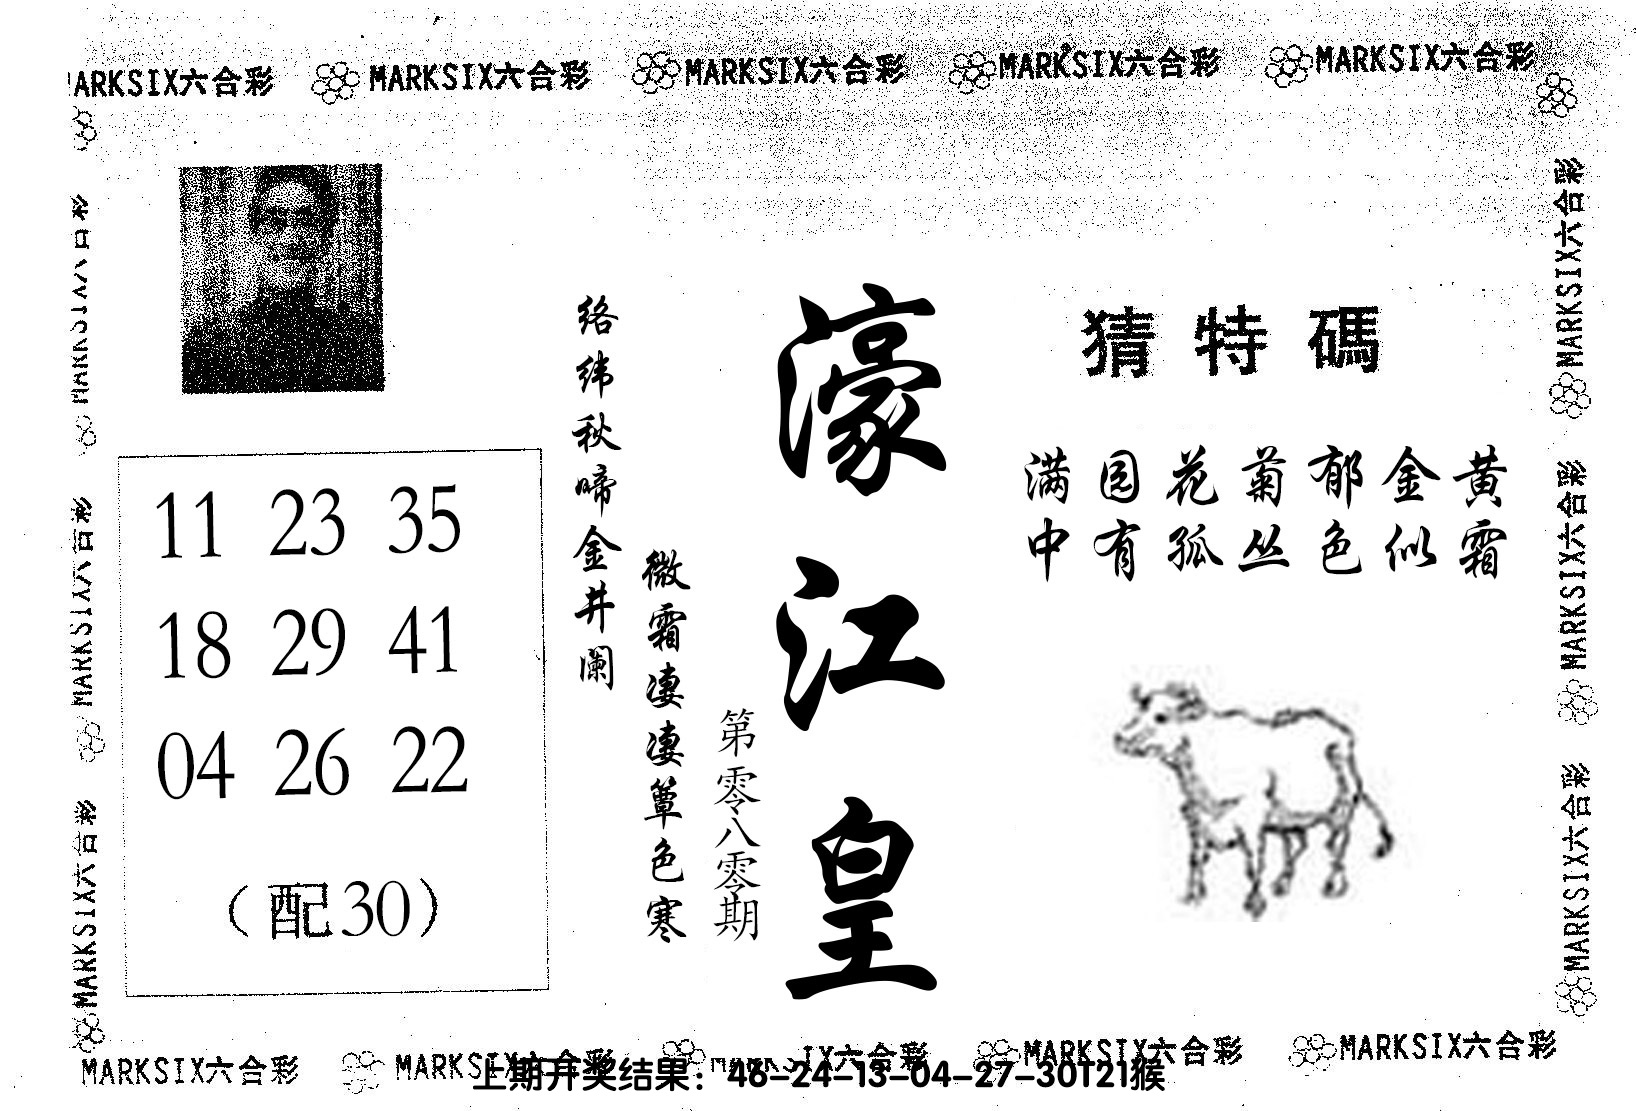 MARKSIX六合彩 MARKSIX六合彩 MARKSIX六合彩 MARKSIX六合彩 MARKSIX六合彩
猜特碼
满园花菊郁金黄
中有孤丛色似霜
濠江皇
第零八零期
络纬秋啼金井阑
微霜凄凄簟色寒
11 23 35
18 29 41
04 26 22
（配30）
MARKSIX六合彩
MARKSIX六合彩
MARKSIX六合彩
MARKSIX六合彩
MARKSIX六合彩
MARKSIX六合彩
MARKSIX六合彩 MARKSIX六合彩 MARKSIX六合彩 MARKSIX六合彩
上期开奖结果：46-24-13-04-27-30T21猴